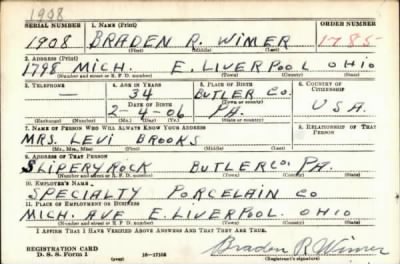 1908
SERIAL NUMBER 1. NAME (Print) ORDER NUMBER
1908 BRADEN R. WIMER 1785
(First) (Middle) (Last)
2. ADDRESS (Print)
1798 MICH. E. LIVERPOOL OHIO
(Number and street or R. F. D. number) (Town) (County) (State)
3. TELEPHONE 4. AGE IN YEARS 5. PLACE OF BIRTH 6. COUNTRY OF CITIZENSHIP
— 34 BUTLER CO.
DATE OF BIRTH (Town or county)
2-4-06 PA. USA.
(Exchange) (Number) (Mo.) (Day) (Yr.) (State or country)
7. NAME OF PERSON WHO WILL ALWAYS KNOW YOUR ADDRESS 8. RELATIONSHIP OF THAT PERSON
MRS. LEVI BROOKS
(Mr., Mrs., Miss) (First) (Middle) (Last)
9. ADDRESS OF THAT PERSON
SLIPERYROCK BUTLER CO. PA.
(Number and street or R. F. D. number) (Town) (County) (State)
10. EMPLOYER'S NAME
SPECIALTY PORCELAIN CO
11. PLACE OF EMPLOYMENT OR BUSINESS
MICH. AVE E. LIVERPOOL. OHIO
(Number and street or R. F. D. number) (Town) (County) (State)
I AFFIRM THAT I HAVE VERIFIED ABOVE ANSWERS AND THAT THEY ARE TRUE.
REGISTRATION CARD
D. S. S. Form 1 16—17105 Braden R Wimer
(Registrant's signature)